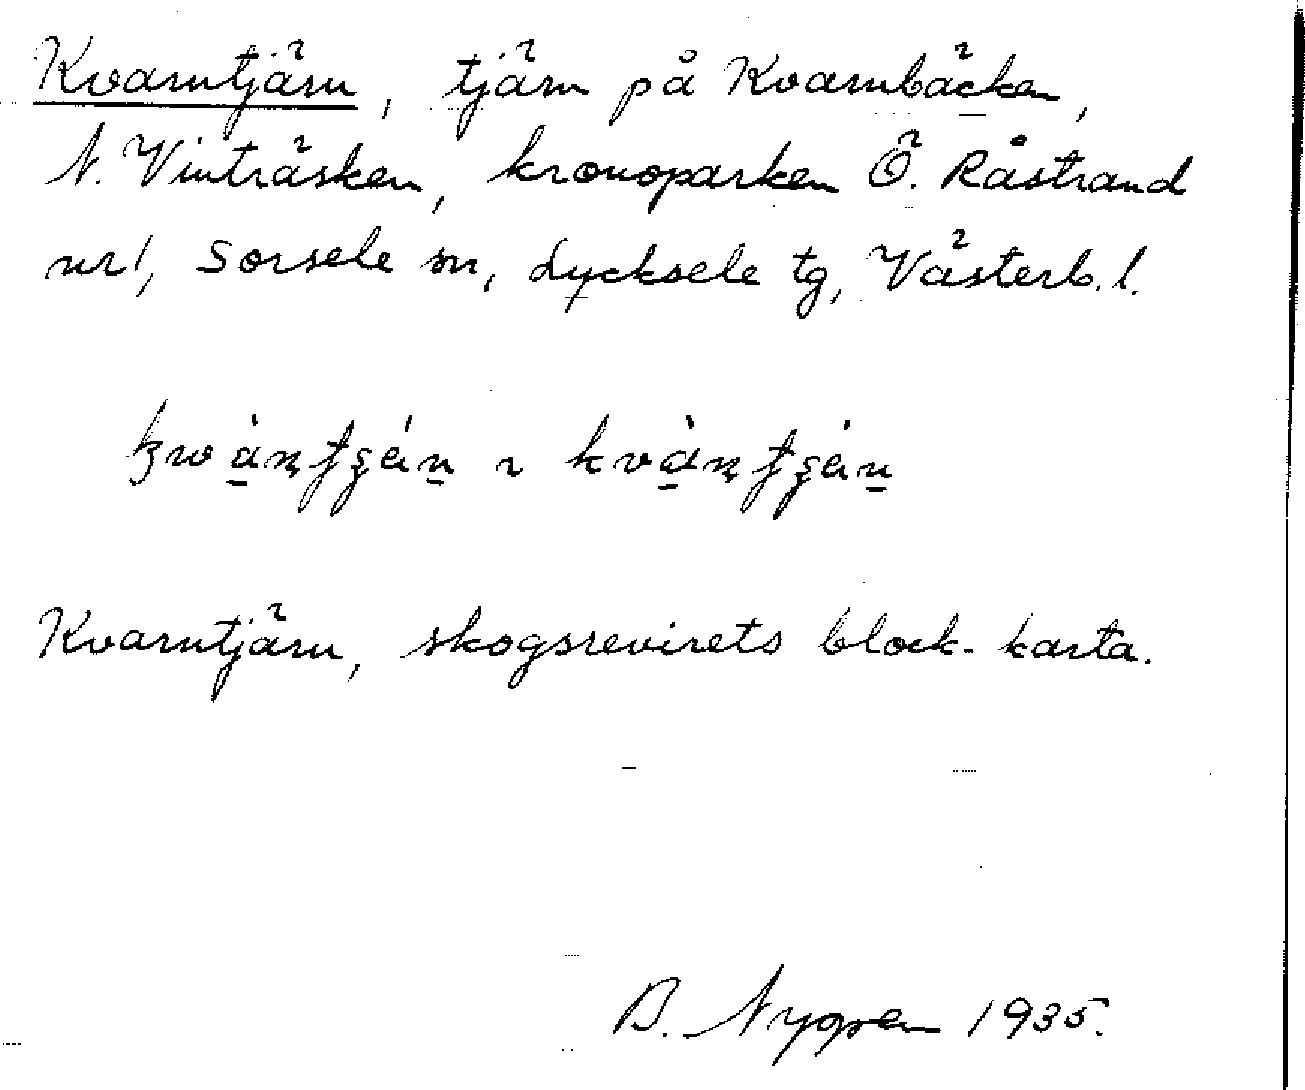 Kvarntjärn, tjärn på Kvarnbäcken,
N. Vinträsken, kronoparken Ö. Råstrand
nr 1, Sorsele sn, Lycksele tg, Västerb. l.
Kvarntjärn, skogsrevirets block-karta.
B. Nygren 1935.